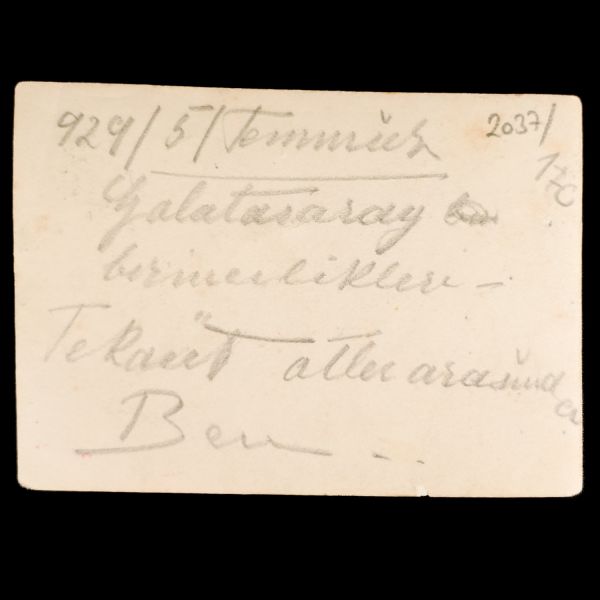 929/5/Temmüz
2037/
170
Galatasaray
birincilikleri -
Tekaüt atlar arasında
Ben - ..